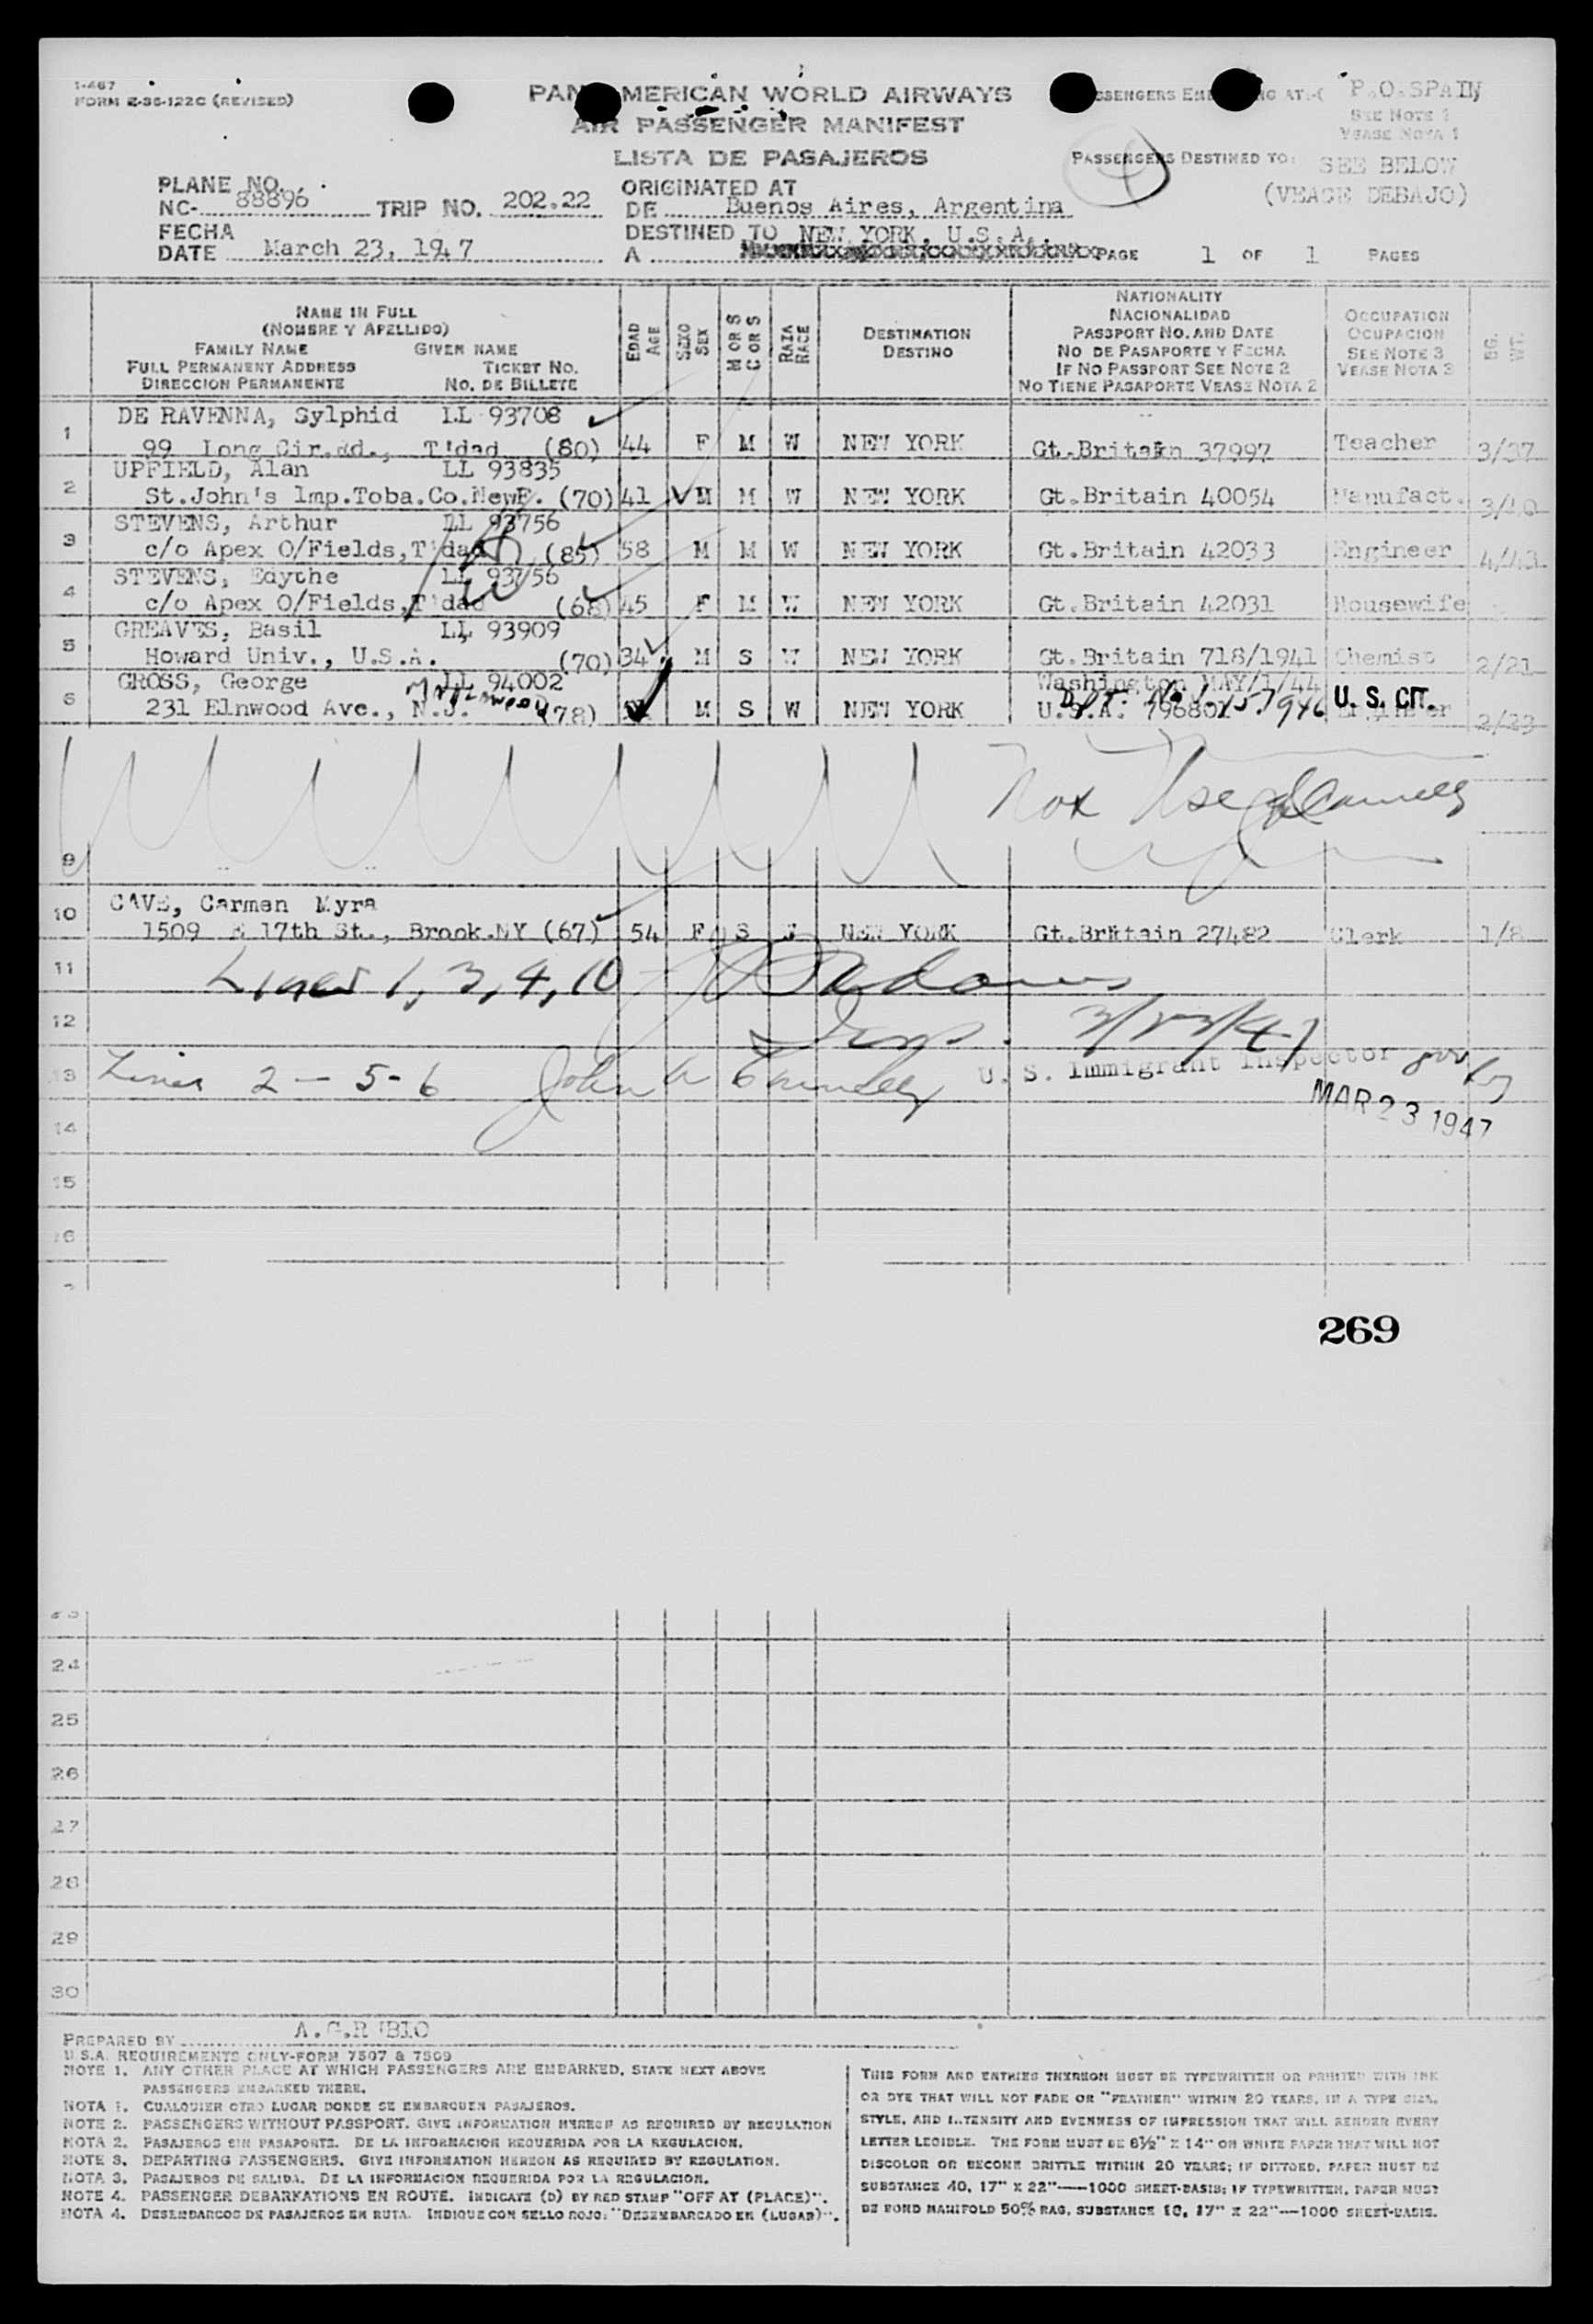 1-467
FORM E-SS-122C (REVISED)
PAN AMERICAN WORLD AIRWAYS
AIR PASSENGER MANIFEST
LISTA DE PASAJEROS
PASSENGERS EMBARKING AT:
P.O.SPAIN
SEE NOTE 1
VEASE NOTA 1
PASSENGERS DESTINED TO: SEE BELOW
(VEASE DEBAJO)
4
PLANE NO.
NC- 88896 TRIP NO. 202.22
ORIGINATED AT
DE Buenos Aires, Argentina
FECHA
DATE March 23, 1947
DESTINED TO NEW YORK, U.S.A.
A
PAGE 1 OF 1 PAGES
NAME IN FULL
(NOMBRE Y APELLIDO)
FAMILY NAME GIVEN NAME
FULL PERMANENT ADDRESS TICKET NO.
DIRECCION PERMANENTE NO. DE BILLETE
EDAD
AGE
SEXO
SEX
M OR S
C OR S
RAZA
RACE
DESTINATION
DESTINO
NATIONALITY
NACIONALIDAD
PASSPORT NO. AND DATE
NO DE PASAPORTE Y FECHA
IF NO PASSPORT SEE NOTE 2
NO TIENE PASAPORTE VEASE NOTA 2
OCCUPATION
OCUPACION
SEE NOTE 3
VEASE NOTA 3
BG.
WT.
DE RAVENNA, Sylphid LL 93708
1 99 Long Cir.Rd., T'dad (80) 44 F M W NEW YORK Gt.Britain 37997 Teacher 3/37
UPFIELD, Alan LL 93835
2 St.John's Imp.Toba.Co.NewF. (70) 41 M M W NEW YORK Gt.Britain 40054 Manufact. 3/40
STEVENS, Arthur LL 93756
3 c/o Apex O/Fields,T'dad (85) 58 M M W NEW YORK Gt.Britain 42033 Engineer 4/43
STEVENS, Edythe LL 93756
4 c/o Apex O/Fields,T'dad (68) 45 F M W NEW YORK Gt.Britain 42031 Housewife
GREAVES, Basil LL 93909
5 Howard Univ., U.S.A. (70) 34 M S W NEW YORK Gt.Britain 718/1941 Chemist 2/21
GROSS, George LL 94002 Washington MAY/1/44
6 231 Elnwood Ave., N.J. (78) M S W NEW YORK U.S.A. U. S. CIT. 2/23
9
CAVE, Carmen Myra
10 1509 E 17th St., Brook.NY (67) 54 F S NEW YORK Gt.Britain 27482 Clerk 1/8
11 Lines 1, 3, 4, 10
12 Insp. 3/23/47
13 Lines 2 - 5 - 6 John
U. S. Immigrant Inspector
MAR 23 1947
14
15
16
269
24
25
26
27
28
29
30
PREPARED BY A.G.RUBIO
U.S.A. REQUIREMENTS ONLY-FORM 7507 & 7509
NOTE 1. ANY OTHER PLACE AT WHICH PASSENGERS ARE EMBARKED, STATE NEXT ABOVE
PASSENGERS EMBARKED THERE.
NOTA 1. CUALQUIER OTRO LUGAR DONDE SE EMBARQUEN PASAJEROS.
NOTE 2. PASSENGERS WITHOUT PASSPORT. GIVE INFORMATION HEREON AS REQUIRED BY REGULATION
NOTA 2. PASAJEROS SIN PASAPORTE. DE LA INFORMACION REQUERIDA POR LA REGULACION.
NOTE 3. DEPARTING PASSENGERS. GIVE INFORMATION HEREON AS REQUIRED BY REGULATION.
NOTA 3. PASAJEROS DE SALIDA. DE LA INFORMACION REQUERIDA POR LA REGULACION.
NOTE 4. PASSENGER DEBARKATIONS EN ROUTE. INDICATE (D) BY RED STAMP "OFF AT (PLACE)".
NOTA 4. DESEMBARCOS DE PASAJEROS EN RUTA. INDIQUE CON SELLO ROJO: "DESEMBARCADO EN (LUGAR)".
THIS FORM AND ENTRIES THEREON MUST BE TYPEWRITTEN OR PRINTED WITH INK
OR DYE THAT WILL NOT FADE OR "FEATHER" WITHIN 20 YEARS, IN A TYPE SIZE,
STYLE, AND INTENSITY AND EVENNESS OF IMPRESSION THAT WILL RENDER EVERY
LETTER LEGIBLE. THE FORM MUST BE 8½" X 14" ON WHITE PAPER THAT WILL NOT
DISCOLOR OR BECOME BRITTLE WITHIN 20 YEARS; IF DITTOED, PAPER MUST BE
SUBSTANCE 40, 17" X 22"—1000 SHEET-BASIS; IF TYPEWRITTEN, PAPER MUST
BE BOND MANIFOLD 50% RAG, SUBSTANCE 10, 17" X 22"—1000 SHEET-BASIS.